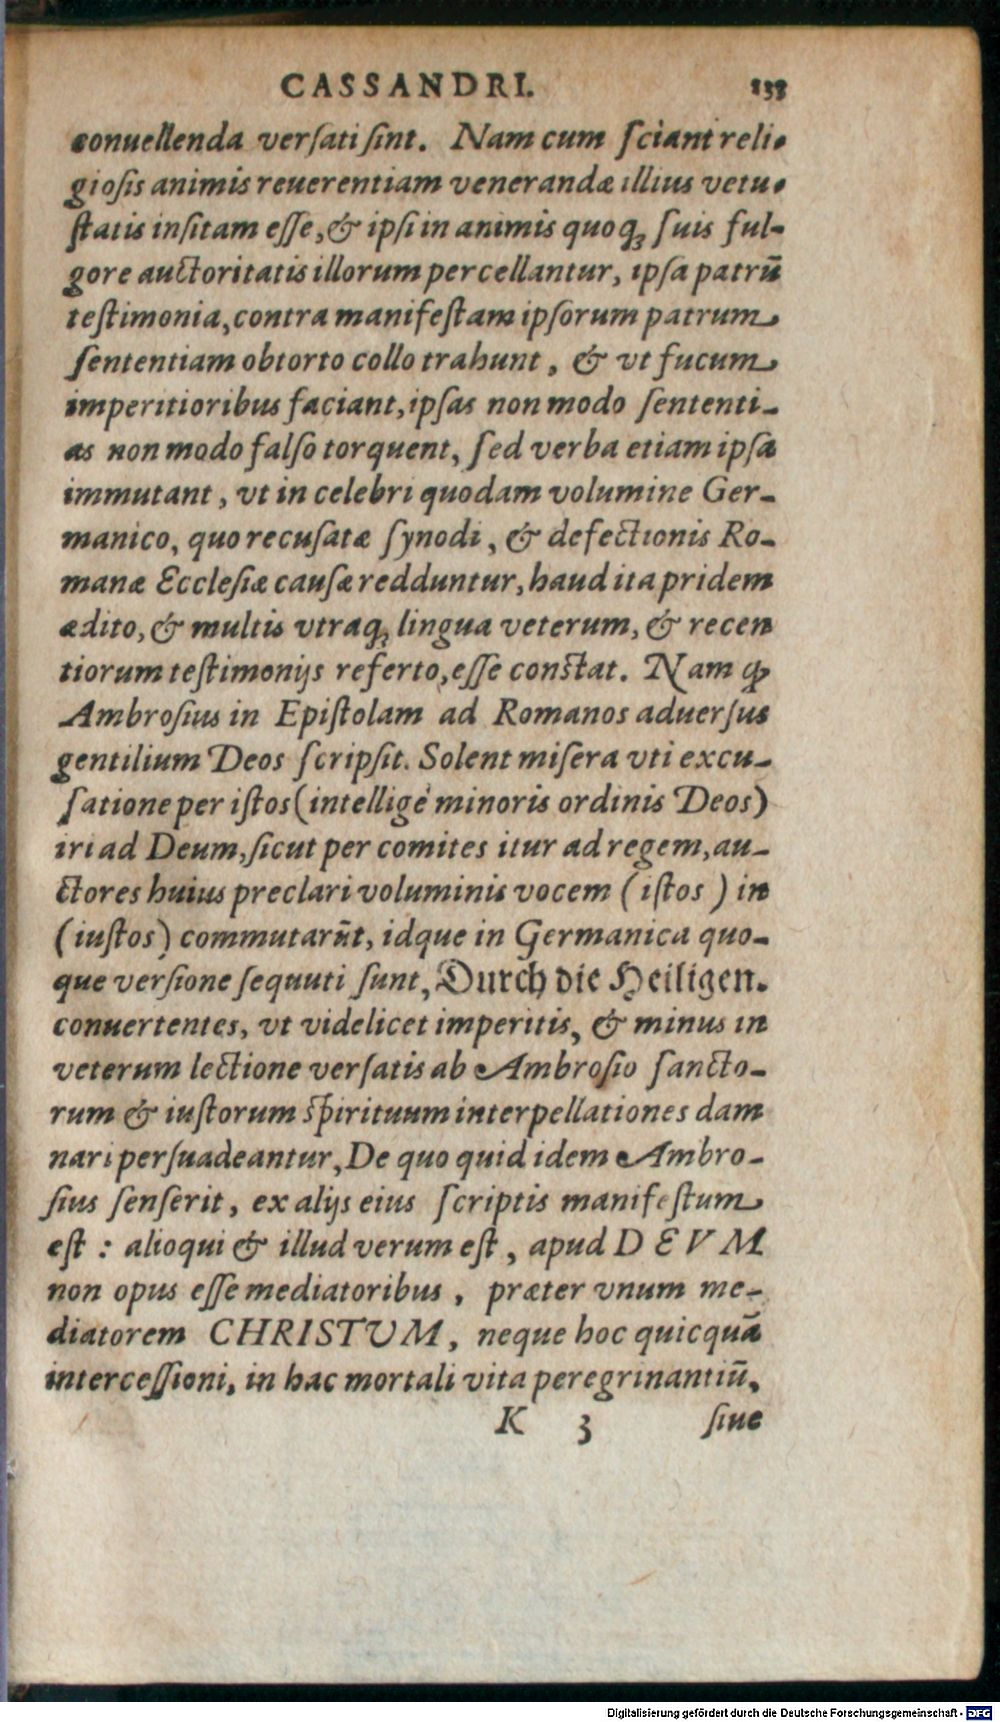 CASSANDRI. 133
conuellenda versati sint. Nam cum sciant reli-
giosis animis reuerentiam venerandæ illius vetu-
statis insitam esse, & ipsi in animis quoq; suis ful-
gore auctoritatis illorum percellantur, ipsa patrū
testimonia, contra manifestam ipsorum patrum
sententiam obtorto collo trahunt, & vt fucum
imperitioribus faciant, ipsas non modo sententi-
as non modo falso torquent, sed verba etiam ipsa
immutant, vt in celebri quodam volumine Ger-
manico, quo recusatæ synodi, & defectionis Ro-
manæ Ecclesiæ causæ redduntur, haud ita pridem
ædito, & multis vtraq; lingua veterum, & recen
tiorum testimonijs referto, esse constat. Nam ꝙ
Ambrosius in Epistolam ad Romanos aduersus
gentilium Deos scripsit. Solent misera vti excu-
satione per istos (intellige minoris ordinis Deos)
iri ad Deum, sicut per comites itur ad regem, au-
ctores huius preclari voluminis vocem (istos) in
(iustos) commutarūt, idque in Germanica quo-
que versione sequuti sunt, Durch die Heiligen.
conuertentes, vt videlicet imperitis, & minus in
veterum lectione versatis ab Ambrosio sancto-
rum & iustorum spirituum interpellationes dam
nari persuadeantur, De quo quid idem Ambro-
sius senserit, ex alijs eius scriptis manifestum
est: alioqui & illud verum est, apud DEVM
non opus esse mediatoribus, præter vnum me-
diatorem CHRISTVM, neque hoc quicquā
intercessioni, in hac mortali vita peregrinantiū,
K 3 siue
Digitalisierung gefördert durch die Deutsche Forschungsgemeinschaft - DFG